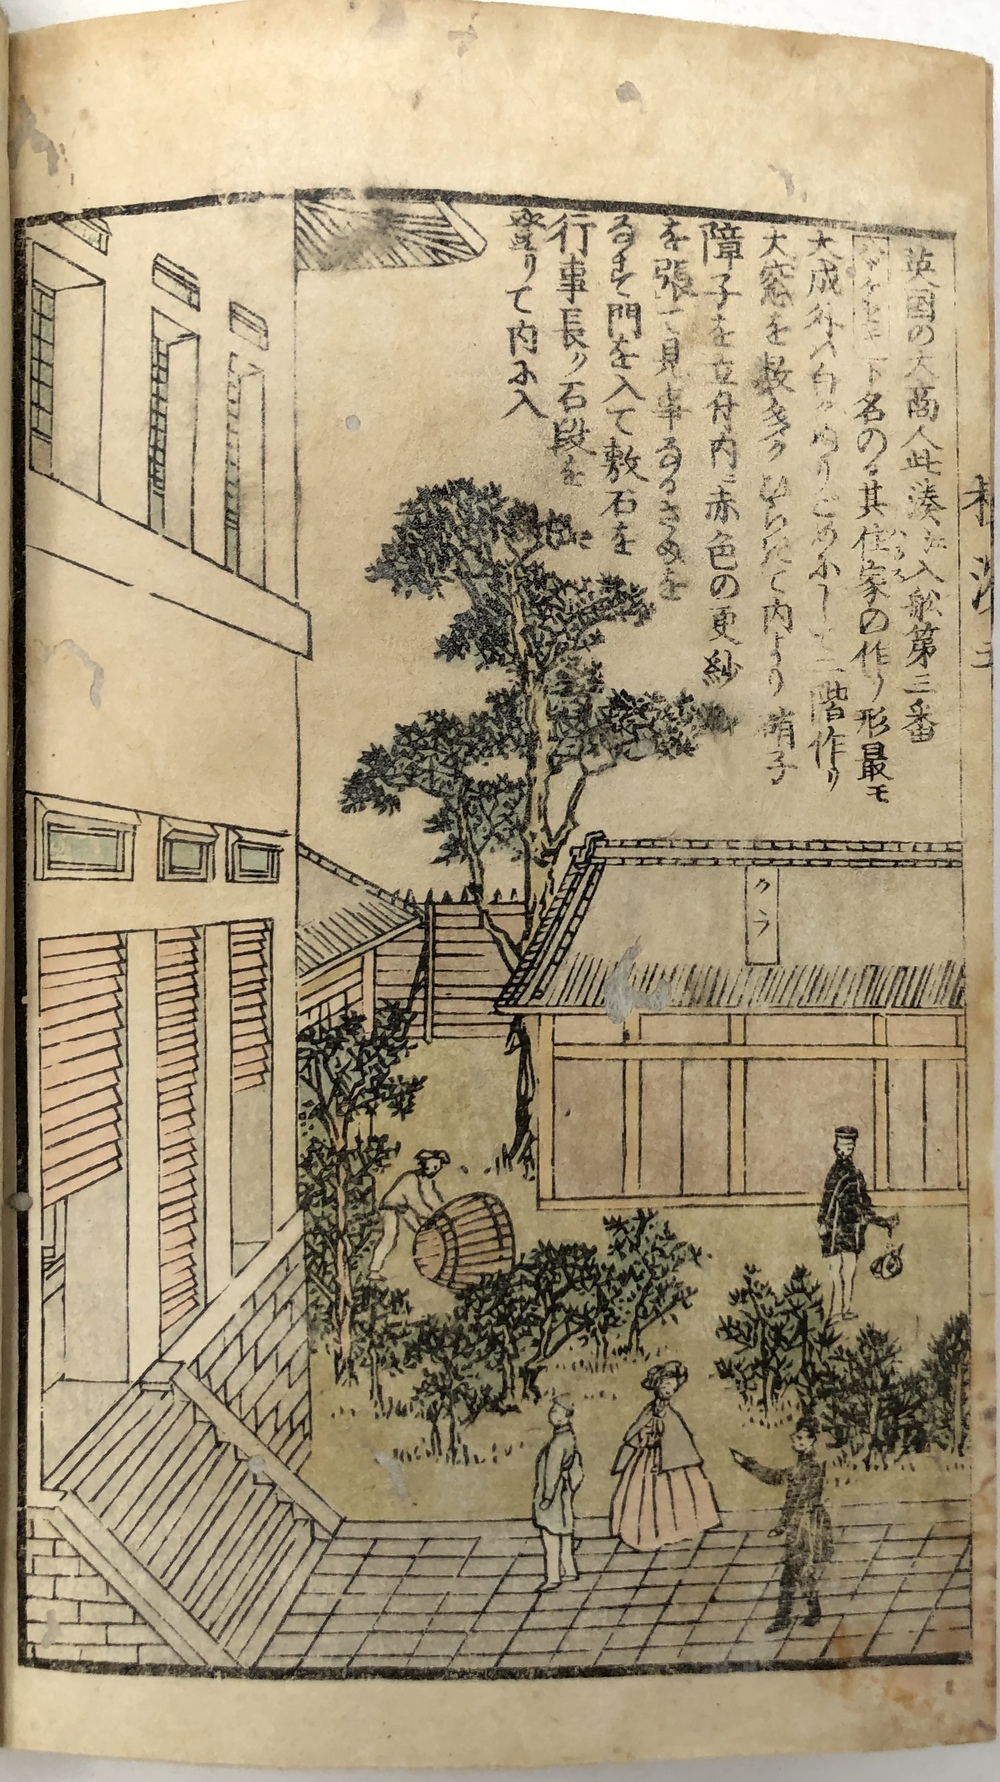 英国の大商人此湊江入舩第三番
下名のる其住家の作り形最モ
大成外ハ白くぬりごめにして二階作り
大窓を数多くひらたて内より硝子
障子を立付内に赤色の更紗
を張て見事なるさまを
なせ門を入て敷石を
行事長ク石段を
登りて内に入
クラ